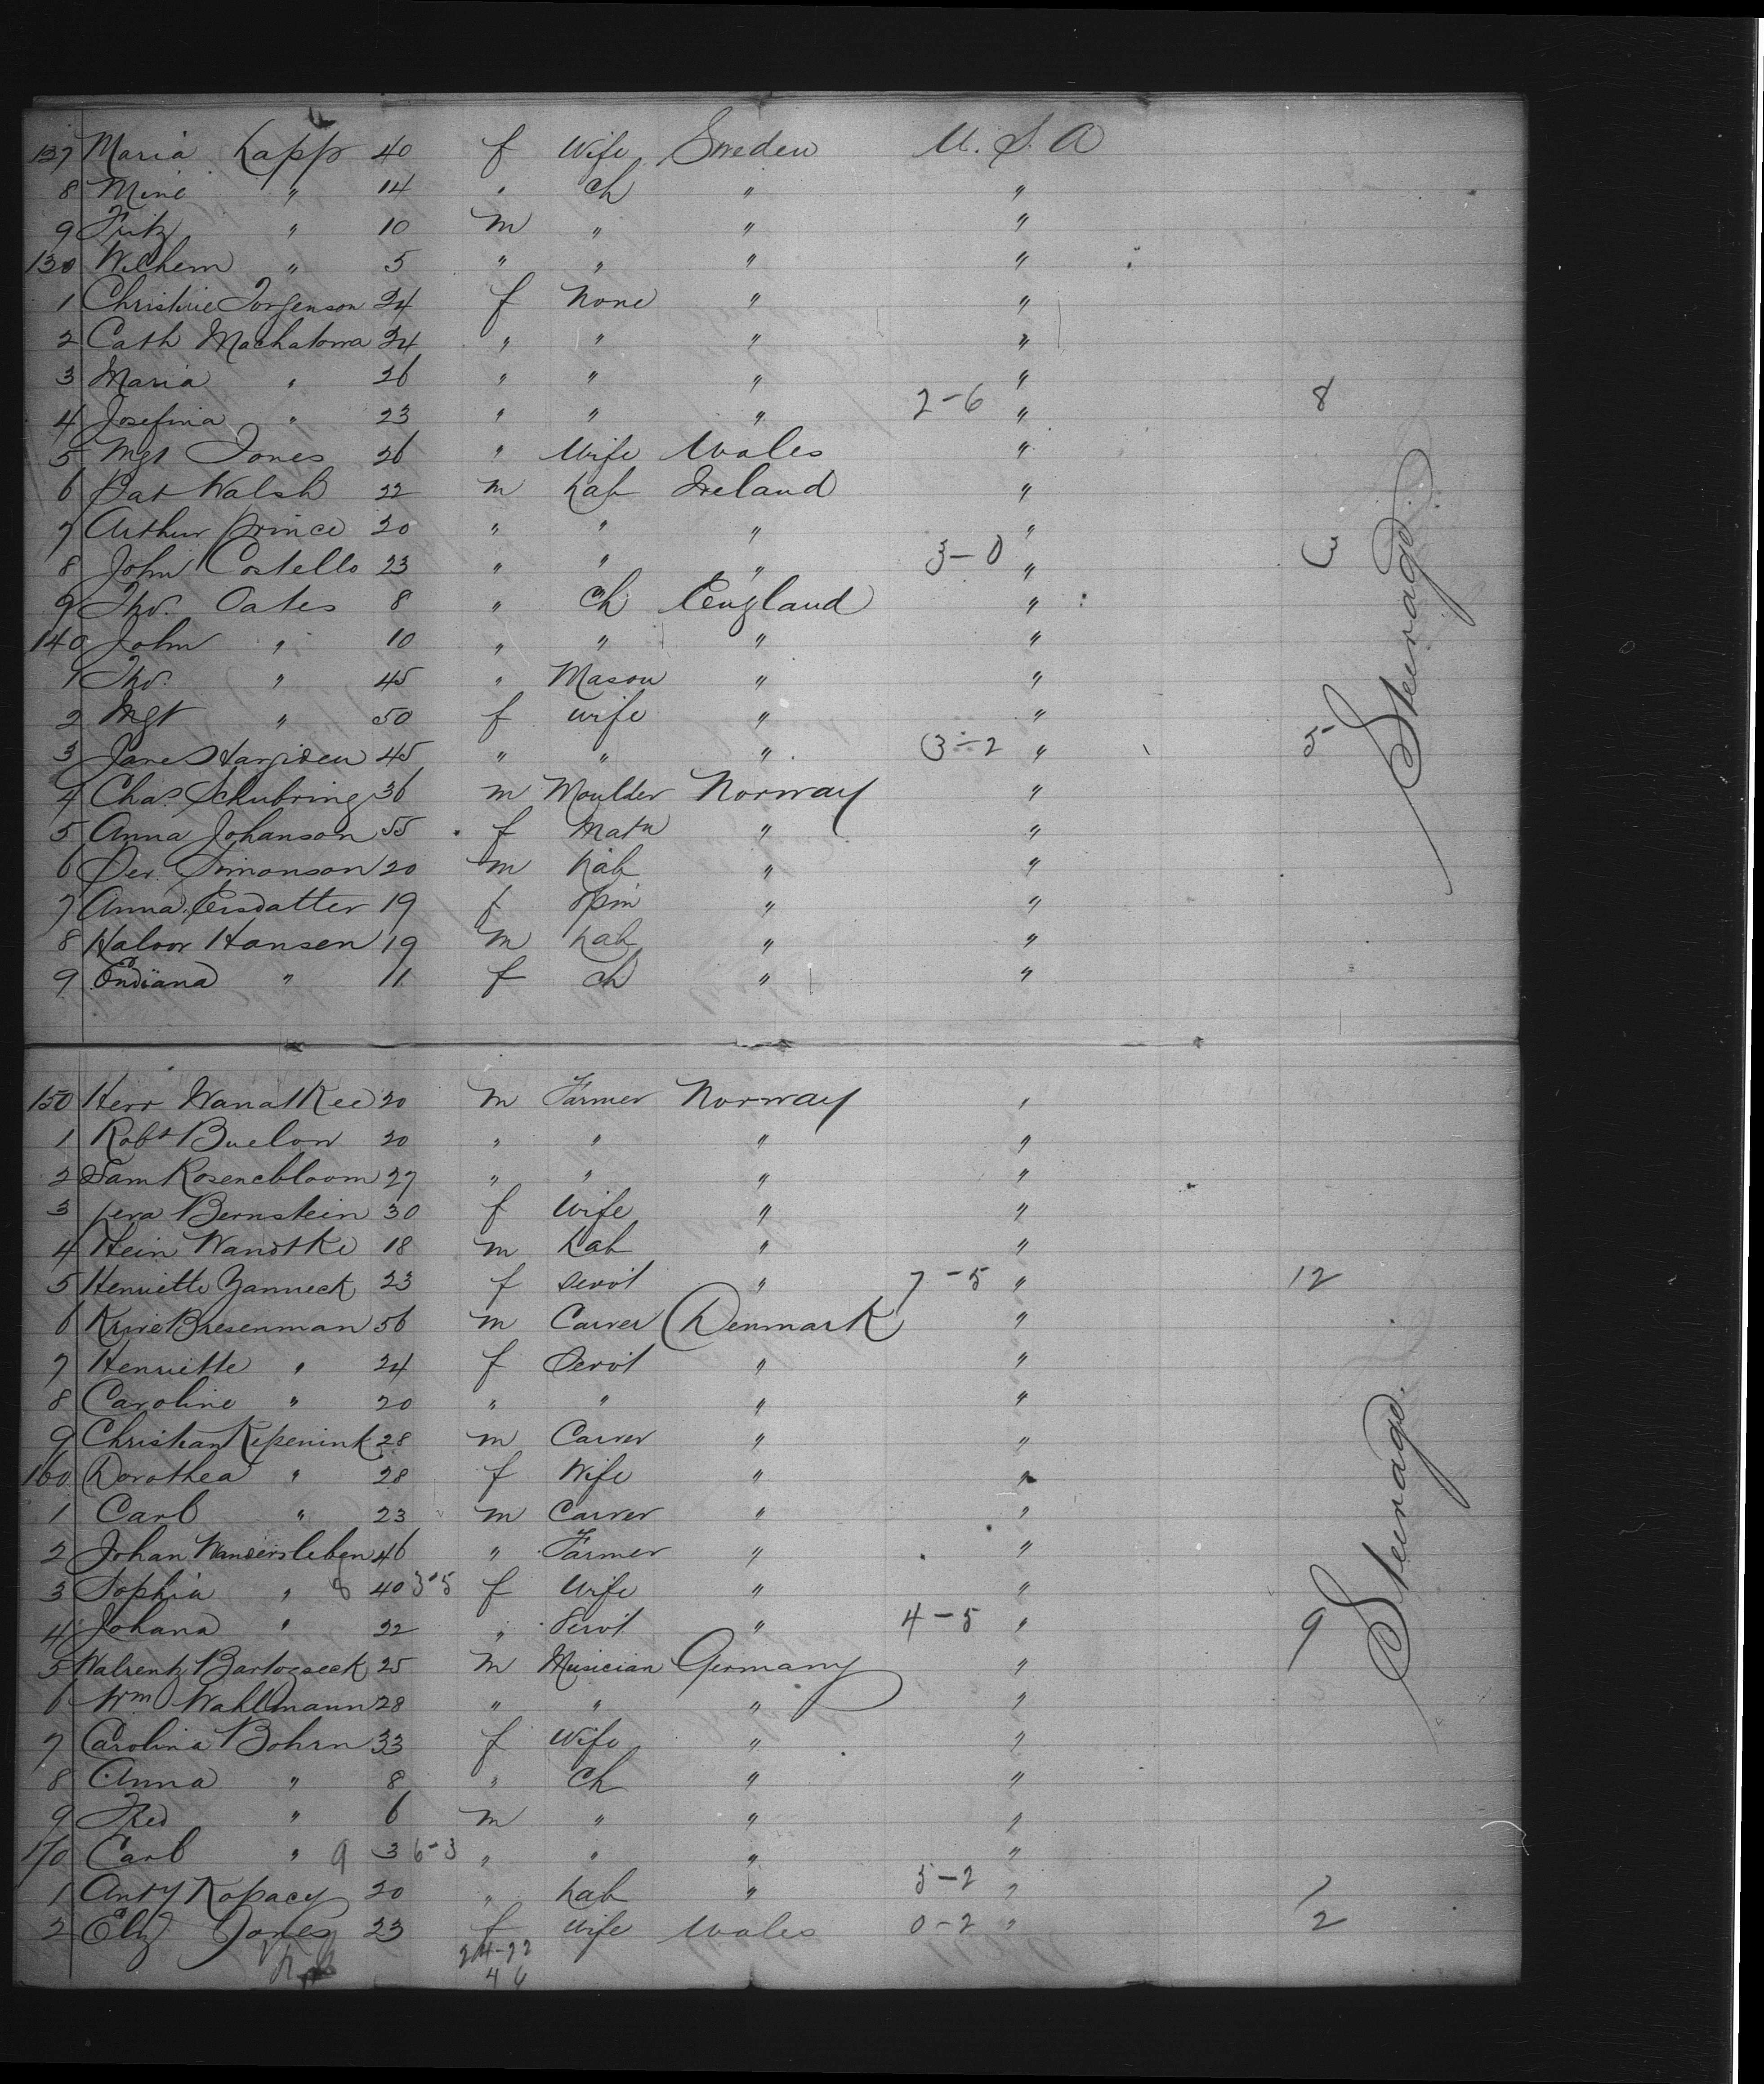 127 Maria Lapp 40 f Wife Sweden U. S. A
8 Mine " 14 " ch " "
9 Fritz " 10 m " " "
130 Wilhem " 5 " " " "
1 Christine Jorgenson 24 f None " "
2 Cath Machatowa 24 " " " "
3 Maria " 26 " " " "
4 Josefina " 23 " " " 2-6 " 8
5 Mgt Jones 26 " Wife Wales "
6 Pat Walsh 22 m Lab Ireland "
7 Arthur Prince 20 " " " "
8 John Costello 23 " " " 3-0 " 3
9 Tho. Oates 8 " ch England "
140 John " 10 " " " "
1 Tho. " 45 " Mason " "
2 Mgt " 50 f wife " "
3 Jane 45 " " " 3-2 " 5
4 Chas. Schubring 36 m Moulder Norway "
5 Anna Johanson 55 f Matn " "
6 Per. Simonson 20 m Lab " "
7 Anna Ersdatter 19 f Spin " "
8 Halvor Hansen 19 m Lab " "
9 " 11 f ch " "
Steerage.
150 Herr Wanatkee 20 m Farmer Norway "
1 Robt Buelow 20 " " " "
2 Sam Rosenebloom 27 " " " "
3 Bernstein 30 f Wife " "
4 Hein Wanotke 18 m Lab " "
5 Henriette Zanneck 23 f Servt " 7-5 " 12
6 Bresenman 56 m Carver Denmark "
7 Henriette " 24 f Servt " "
8 Caroline " 20 " " " "
9 Christian Kepenink 28 m Carver " "
160 Dorothea " 28 f Wife " "
1 Carl " 23 m Carver " "
2 Johan Wandersleben 46 " Farmer " "
3 Sophia " 8 40 3-5 f Wife " "
4 Johana " 22 " Servt " 4-5 " 9
5 Walrentz Bartozseck 25 m Musician Germany "
6 Wm Wahlmann 28 " " " "
7 Carolina Bohrn 33 f Wife " "
8 Anna " 8 " Ch " "
9 Fred " 6 m " " "
170 Carl " 9 3 6-3 " " " "
1 Anty Kopacy 20 " Lab " 5-2 " 7
2 Eliz Jones 23 f Wife Wales 0-2 " 2
24-22
46
Steerage.